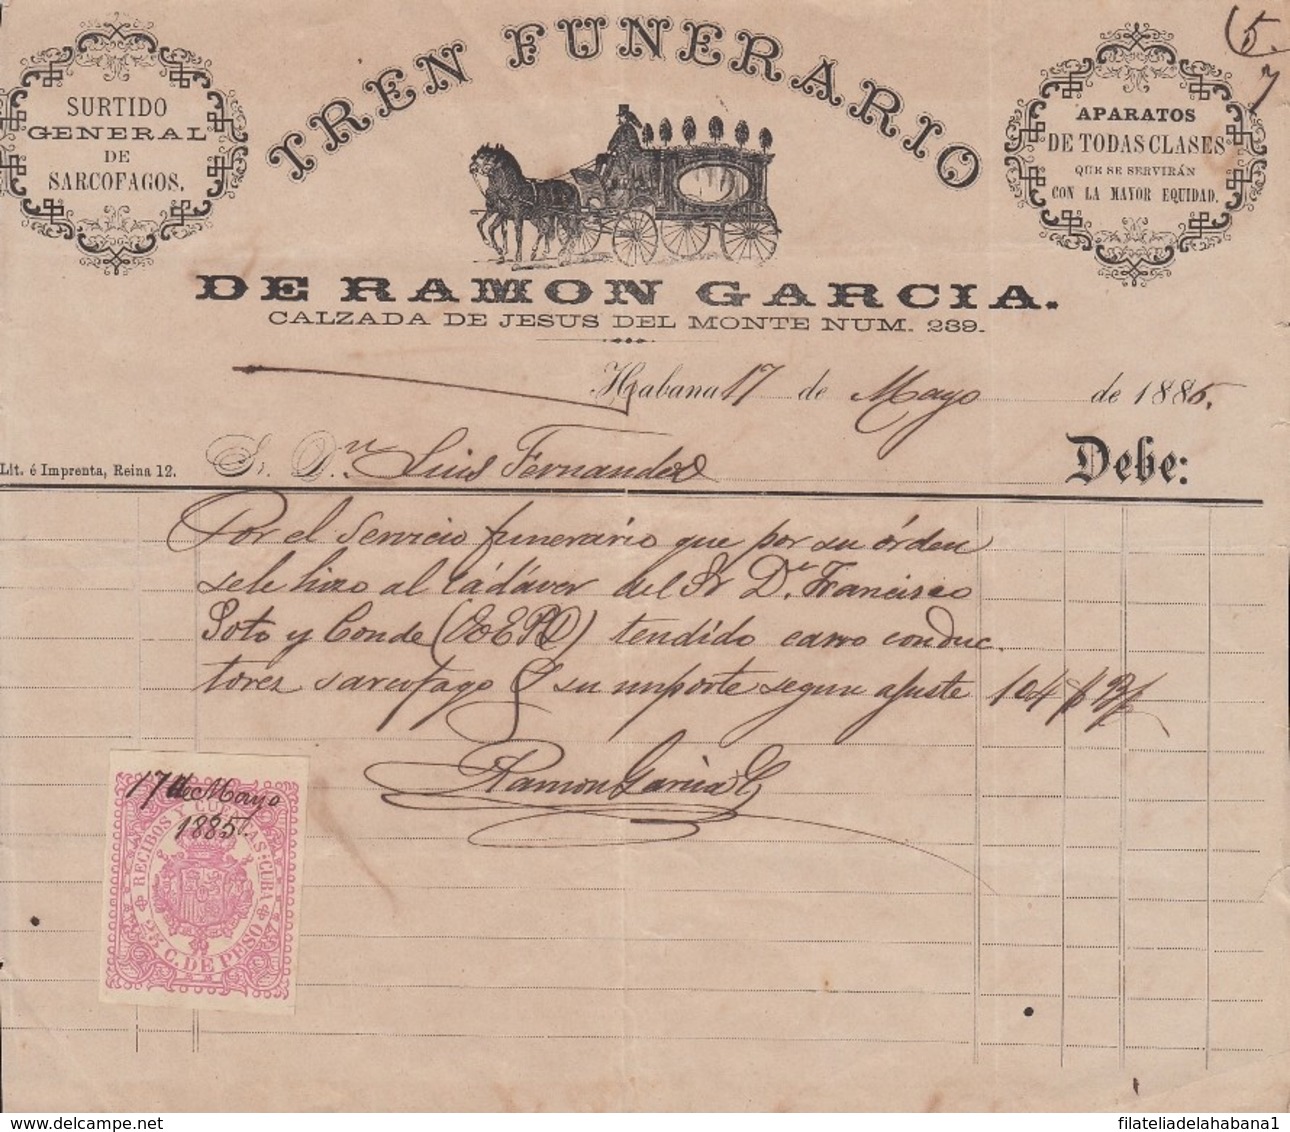 5.
7
SURTIDO
GENERAL
DE
SARCOFAGOS.
TREN FUNERARIO
APARATOS
DE TODAS CLASES
QUE SE SERVIRÁN
CON LA MAYOR EQUIDAD.
DE RAMON GARCIA.
CALZADA DE JESUS DEL MONTE NUM. 239.
Habana 17 de Mayo de 1885.
Lit. é Imprenta, Reina 12.
Sr. Dn Luis Fernandez
Debe:
Por el Servicio funerário que por su órden
se le hizo al Cadáver del Sr Dn Francisco
Soto y Conde (Q E P D) tendido carro conduc
tores sarcofago su importe segun ajuste 104
Ramon Garcia
17 de Mayo
1885.
RECIBOS Y CUENTAS: CUBA
25 C. DE PESO
filateliadelahabana1